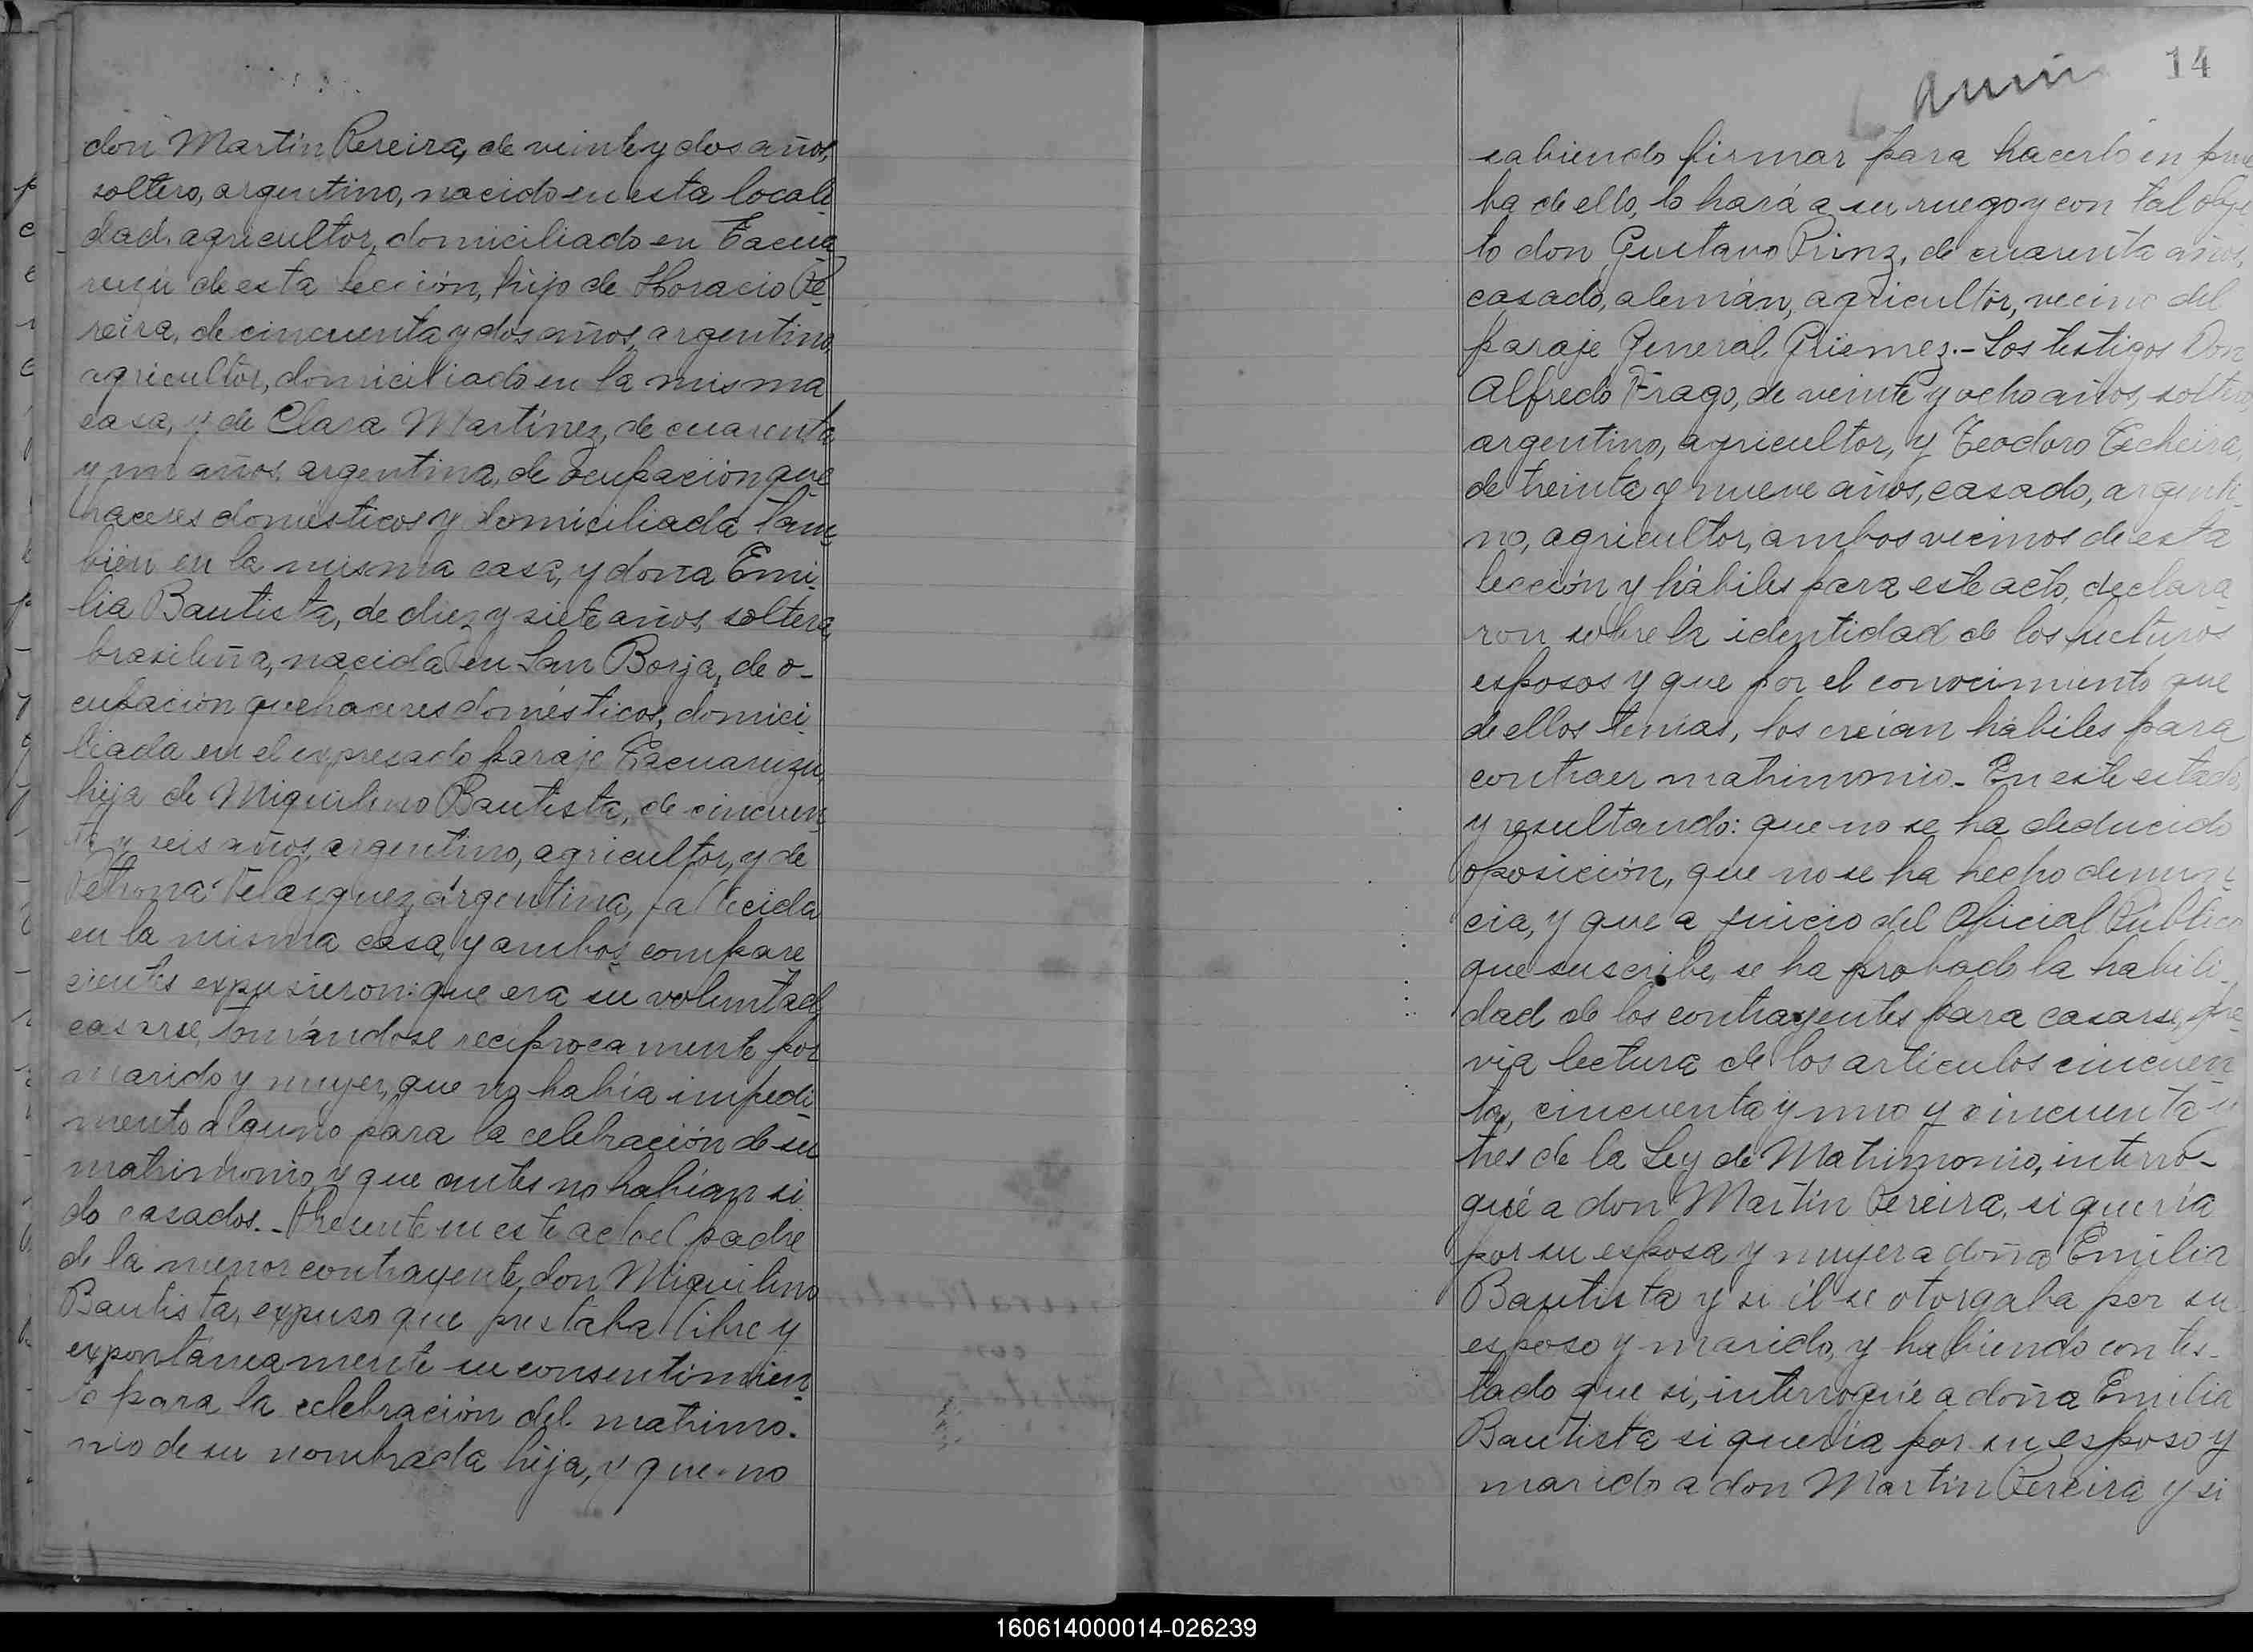 don Martin Pereira, de veinte y dos años,
soltero, argentino, nacido en esta locali
dad, agricultor, domiciliado en Tacua
ruzú de esta sección, hijo de Horacio Pe
reira, de cincuenta y dos años, argentino,
agricultor, domiciliado en la misma
casa, y de Clara Martínez, de cuarenta
y un años, argentina, de ocupacion que
haceres domésticos y domiciliada tam
bién en la misma casa, y doña Emi
lia Bautista, de diez y siete años, soltera,
brasileña, nacida en San Borja, de o-
cupación quehaceres domésticos, domici
liada en el expresado paraje Tacuaruzú,
hija de Miquilino Bautista, de cincuen
ta y seis años, argentino, agricultor, y de
Petrona Velazquez, argentina, fallecida
en la misma casa, y ambos compare
cientes expusieron: que era su voluntad
casarse, tomándose reciprocamente por
marido y mujer, que no había impedi
mento alguno para la celebración de su
matrimonio, y que antes no habían si
do casados.- Presente en este acto el padre
de la menor contrayente, don Miquilino
Bautista, expuso que prestaba libre y
expontáneamente su consentimien
to para la celebración del matrimo-
nio de su nombrada hija, y que no
14
sabiendo firmar para hacerlo en prue
ba de ello, lo hará a su ruego y con tal obje
to don Gustavo Prinz, de cuarenta años,
casado, alemán, agricultor, vecino del
paraje General Güemez.- Los testigos Don
Alfredo Frago, de veinte y ocho años, soltero,
argentino, agricultor, y Teodoro Techeira,
de treinta y nueve años, casado, argenti-
no, agricultor, ambos vecinos de esta
sección y hábiles para este acto, declara
ron sobre la identidad de los futuros
esposos y que por el conocimiento que
de ellos tenías, los creían hábiles para
contraer matrimonio.- En este estado,
y resultando: que no se ha deducido
oposición, que no se ha hecho denun
cia, y que a juicio del Oficial Público
que suscribe, se ha probado la habili-
dad de los contrayentes para casarse, pre
via lectura de los artículos cincuen
ta, cincuenta y uno y cincuenta y
tres de la Ley de Matrimonio, interro-
gué a don Martín Pereira, si quería
por su esposa y mujer a doña Emilia
Bautista y si él se otorgaba por su
esposo y marido, y habiendo contes-
tado que si, interrogué a doña Emilia
Bautista si quería por su esposo y
marido a don Martín Pereira y si
160614000014-026239